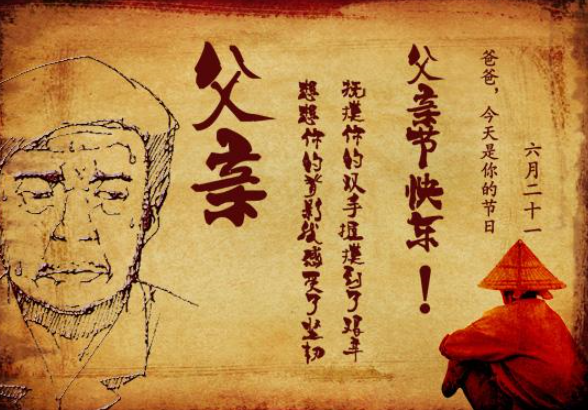 六月二十一
爸爸，今天是你的节日
父亲节快乐！
抚摸你的双手摸到了艰辛
想想你的背影我感受了坚韧
父亲